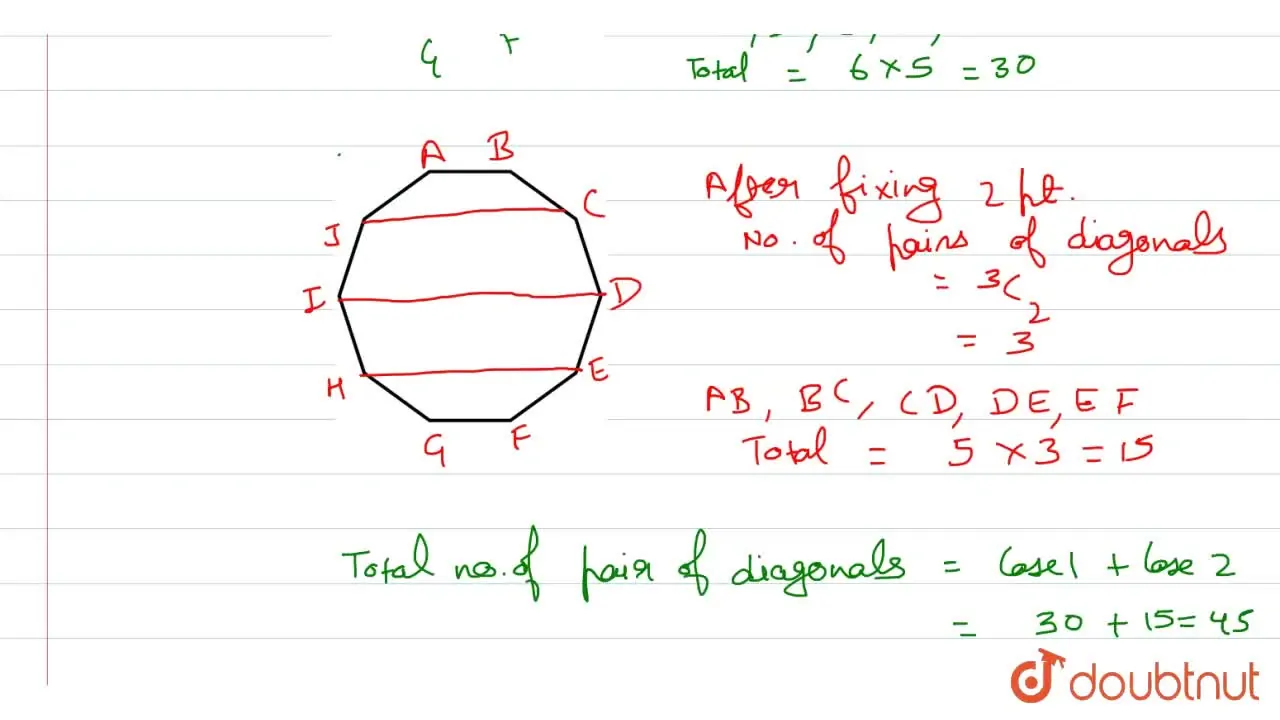 G F
Total = 6 × 5 = 30
A B
J C
I D
H E
G F
After fixing 2 pt.
No. of pairs of diagonals
= 3C2
= 3
AB, BC, CD, DE, EF
Total = 5 × 3 = 15
Total no. of pair of diagonals = Case 1 + Case 2
= 30 + 15 = 45
doubtnut